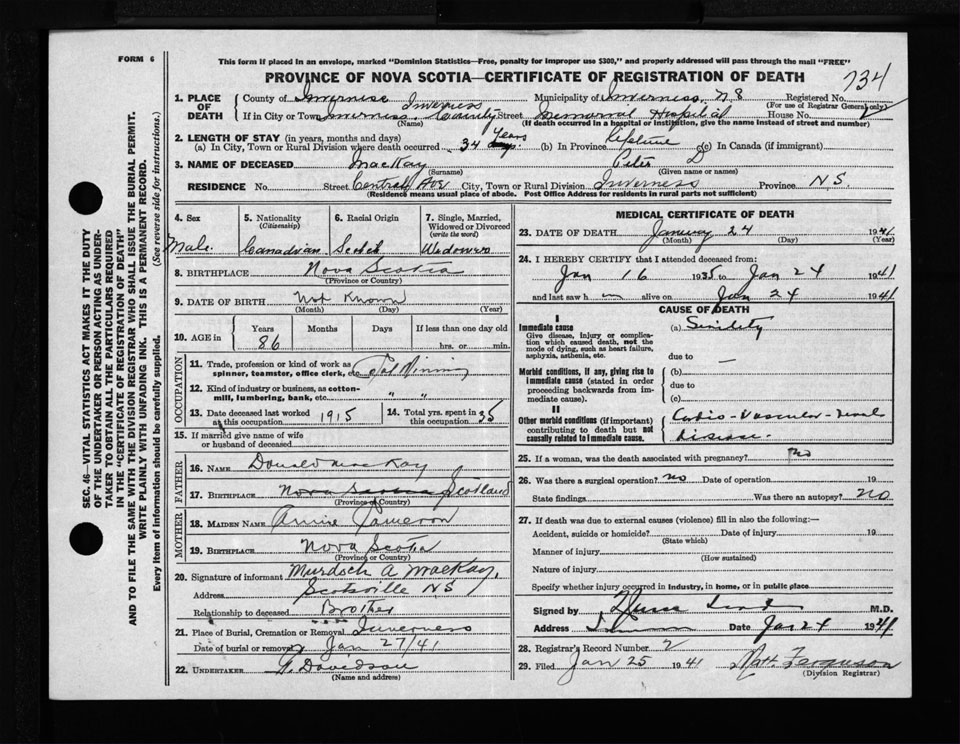 FORM 6
This form if placed in an envelope, marked "Dominion Statistics—Free, penalty for improper use $300," and properly addressed will pass through the mail "FREE"
PROVINCE OF NOVA SCOTIA—CERTIFICATE OF REGISTRATION OF DEATH
734
1. PLACE OF DEATH
County of Inverness Municipality of Inverness, N S Registered No.
(For use of Registrar General only)
Inverness
If in City or Town Inverness, County Street Memorial Hospital House No.
(Name) (If death occurred in a hospital or institution, give the name instead of street and number)
2. LENGTH OF STAY (in years, months and days)
(a) In City, Town or Rural Division where death occurred 34 Years days. (b) In Province Lifetime (c) In Canada (if immigrant)
3. NAME OF DECEASED MacKay Peter D
(Surname) (Given name or names)
RESIDENCE No. Street Central Ave City, Town or Rural Division Inverness Province N S.
(Residence means usual place of abode. Post Office Address for residents in rural parts not sufficient)
4. Sex
Male.
5. Nationality
(Citizenship)
Canadian
6. Racial Origin
Scotch
7. Single, Married, Widowed or Divorced
(write the word)
Widower
8. BIRTHPLACE Nova Scotia
(Province or Country)
9. DATE OF BIRTH Not Known
(Month) (Day) (Year)
10. AGE in
Years Months Days If less than one day old
86 hrs. or min.
OCCUPATION
11. Trade, profession or kind of work as spinner, teamster, office clerk, etc. Coal Mining
12. Kind of industry or business, as cotton-mill, lumbering, bank, etc. " "
13. Date deceased last worked at this occupation 1915
14. Total yrs. spent in this occupation 35
15. If married give name of wife or husband of deceased
FATHER
16. NAME Donald MacKay
17. BIRTHPLACE Nova Scotia Scotland
(Province or Country)
MOTHER
18. MAIDEN NAME Annie Cameron
19. BIRTHPLACE Nova Scotia
(Province or Country)
20. Signature of informant Murdoch A MacKay,
Address Scotsville N S
Relationship to deceased Brother
21. Place of Burial, Cremation or Removal Inverness
Date of burial or removal Jan 27/41
22. UNDERTAKER Davidson
(Name and address)
MEDICAL CERTIFICATE OF DEATH
23. DATE OF DEATH January 24 1941
(Month) (Day) (Year)
24. I HEREBY CERTIFY that I attended deceased from:
Jan 16 1935 to Jan 24 1941
and last saw h m alive on Jan 24 1941
CAUSE OF DEATH
I
Immediate cause (a) Senility
Give disease, injury or complication which caused death, not the mode of dying, such as heart failure, asphyxia, asthenia, etc.
due to —
Morbid conditions, if any, giving rise to immediate cause (stated in order proceeding backwards from immediate cause).
(b)
due to
(c)
II
Other morbid conditions (if important) contributing to death but not causally related to immediate cause.
Cardio-Vascular-Renal
Disease.
25. If a woman, was the death associated with pregnancy? no
26. Was there a surgical operation? no Date of operation 19
State findings Was there an autopsy? no
27. If death was due to external causes (violence) fill in also the following:—
Accident, suicide or homicide? Date of injury 19
(State which)
Manner of injury
(How sustained)
Nature of injury
Specify whether injury occurred in industry, in home, or in public place
Signed by M.D.
Address Date Jan 24 1941
28. Registrar's Record Number 2
29. Filed Jan 25 1941 Ferguson
(Division Registrar)
SEC. 46—VITAL STATISTICS ACT MAKES IT THE DUTY
OF THE UNDERTAKER OR PERSON ACTING AS UNDER-
TAKER TO OBTAIN ALL THE PARTICULARS REQUIRED
IN THE "CERTIFICATE OF REGISTRATION OF DEATH"
AND TO FILE THE SAME WITH THE DIVISION REGISTRAR WHO SHALL ISSUE THE BURIAL PERMIT.
WRITE PLAINLY WITH UNFADING INK. THIS IS A PERMANENT RECORD.
Every item of information should be carefully supplied. (See reverse side for instructions.)